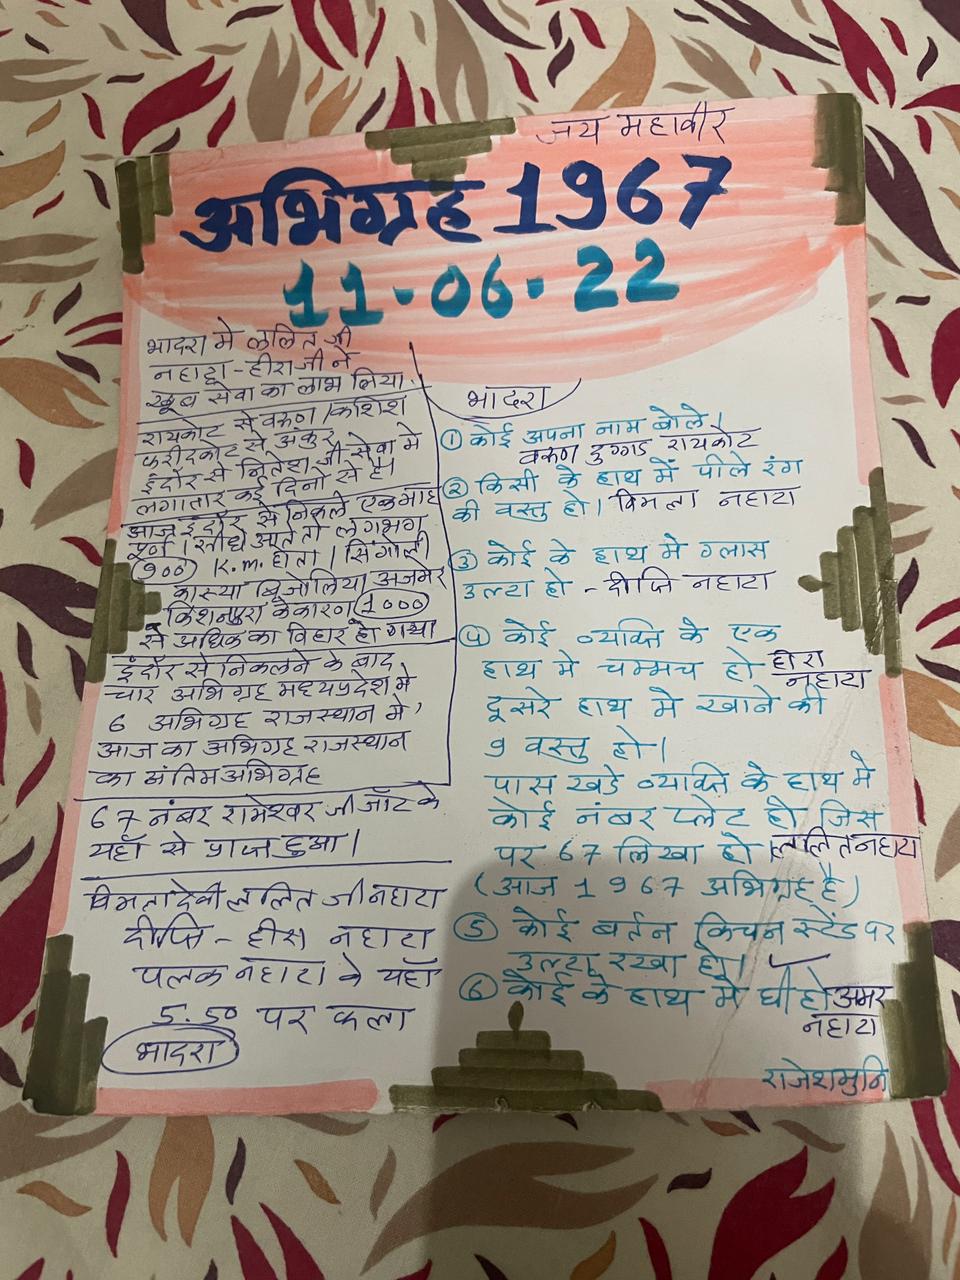 जय महावीर
अभिग्रह 1967
11-06-22
भादरा मे ललित जी
नहाटा - हीराजी ने
खूब सेवा का लाभ लिया
रायकोट से वरूण / कशिश
फरीदकोट से अंकुर
इंदौर से जितेश जी सेवा मे
लगातार कई दिनो से है।
आज इंदौर से निकले एक माह
पूर्ण। सीधे आते तो लगभग
900 K.m. होता। सिंगोली
कास्या बिजोलिया अजमेर
किशनपुरा के कारण 1000
से अधिक का विहार हो गया
इंदौर से निकलने के बाद
चार अभिग्रह मध्यप्रदेश मे
6 अभिग्रह राजस्थान मे,
आज का अभिग्रह राजस्थान
का अंतिम अभिग्रह
67 नंबर रामेश्वर जी जॉट के
यहाँ से प्राप्त हुआ।
विमलादेवी ललित जी नहाटा
दीप्ति - हीरा नहाटा
पलक नहाटा के यहाँ
5.50 पर फला
भादरा
भादरा
① कोई अपना नाम बोले।
वरूण दुग्गड रायकोट
② किसी के हाथ में पीले रंग
की वस्तु हो। विमला नहाटा
③ कोई के हाथ मे ग्लास
उल्टा हो - दीप्ति नहाटा
④ कोई व्यक्ति के एक
हाथ मे चम्मच हो हीरा नहाटा
दूसरे हाथ मे खाने की
9 वस्तु हो।
पास खडे व्यक्ति के हाथ मे
कोई नंबर प्लेट हो जिस
पर 67 लिखा हो ललित नहाटा
(आज 1967 अभिग्रह है)
⑤ कोई बर्तन किचन स्टेंड पर
उल्टा रखा हो। ✓
⑥ कोई के हाथ मे घी हो अमर
नहाटा
राजेशमुनि